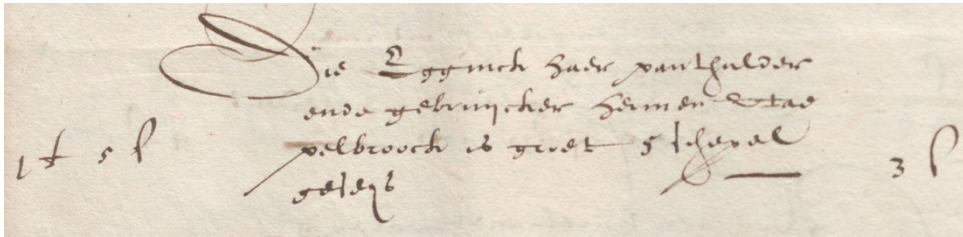 Die Egginck haer panthalder
ende gebruijcker Hermen Stap
pelbroock is groet 5 schepel
geseijs
1 f 5 ß
3 ß